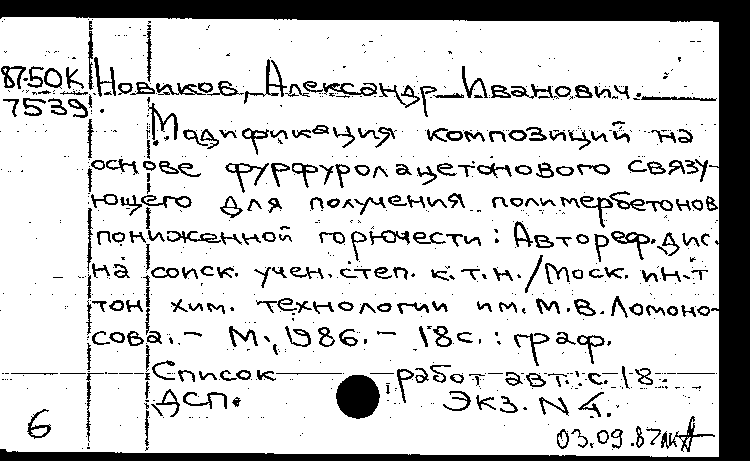 87-50К Новиков, Александр Иванович.
7539
Модификация композиций на
основе фурфуролацетонового связу-
ющего для получения полимербетонов
пониженной горючести: Автореф. дис.
на соиск. учен. степ. к.т.н./Моск. ин-т
тон хим. технологии им. М.В. Ломоно-
сова. - М., 1986. - 18 с. : граф.
Список работ авт.: с. 18.
ДСП. Экз. N 4.
6
03.09.87